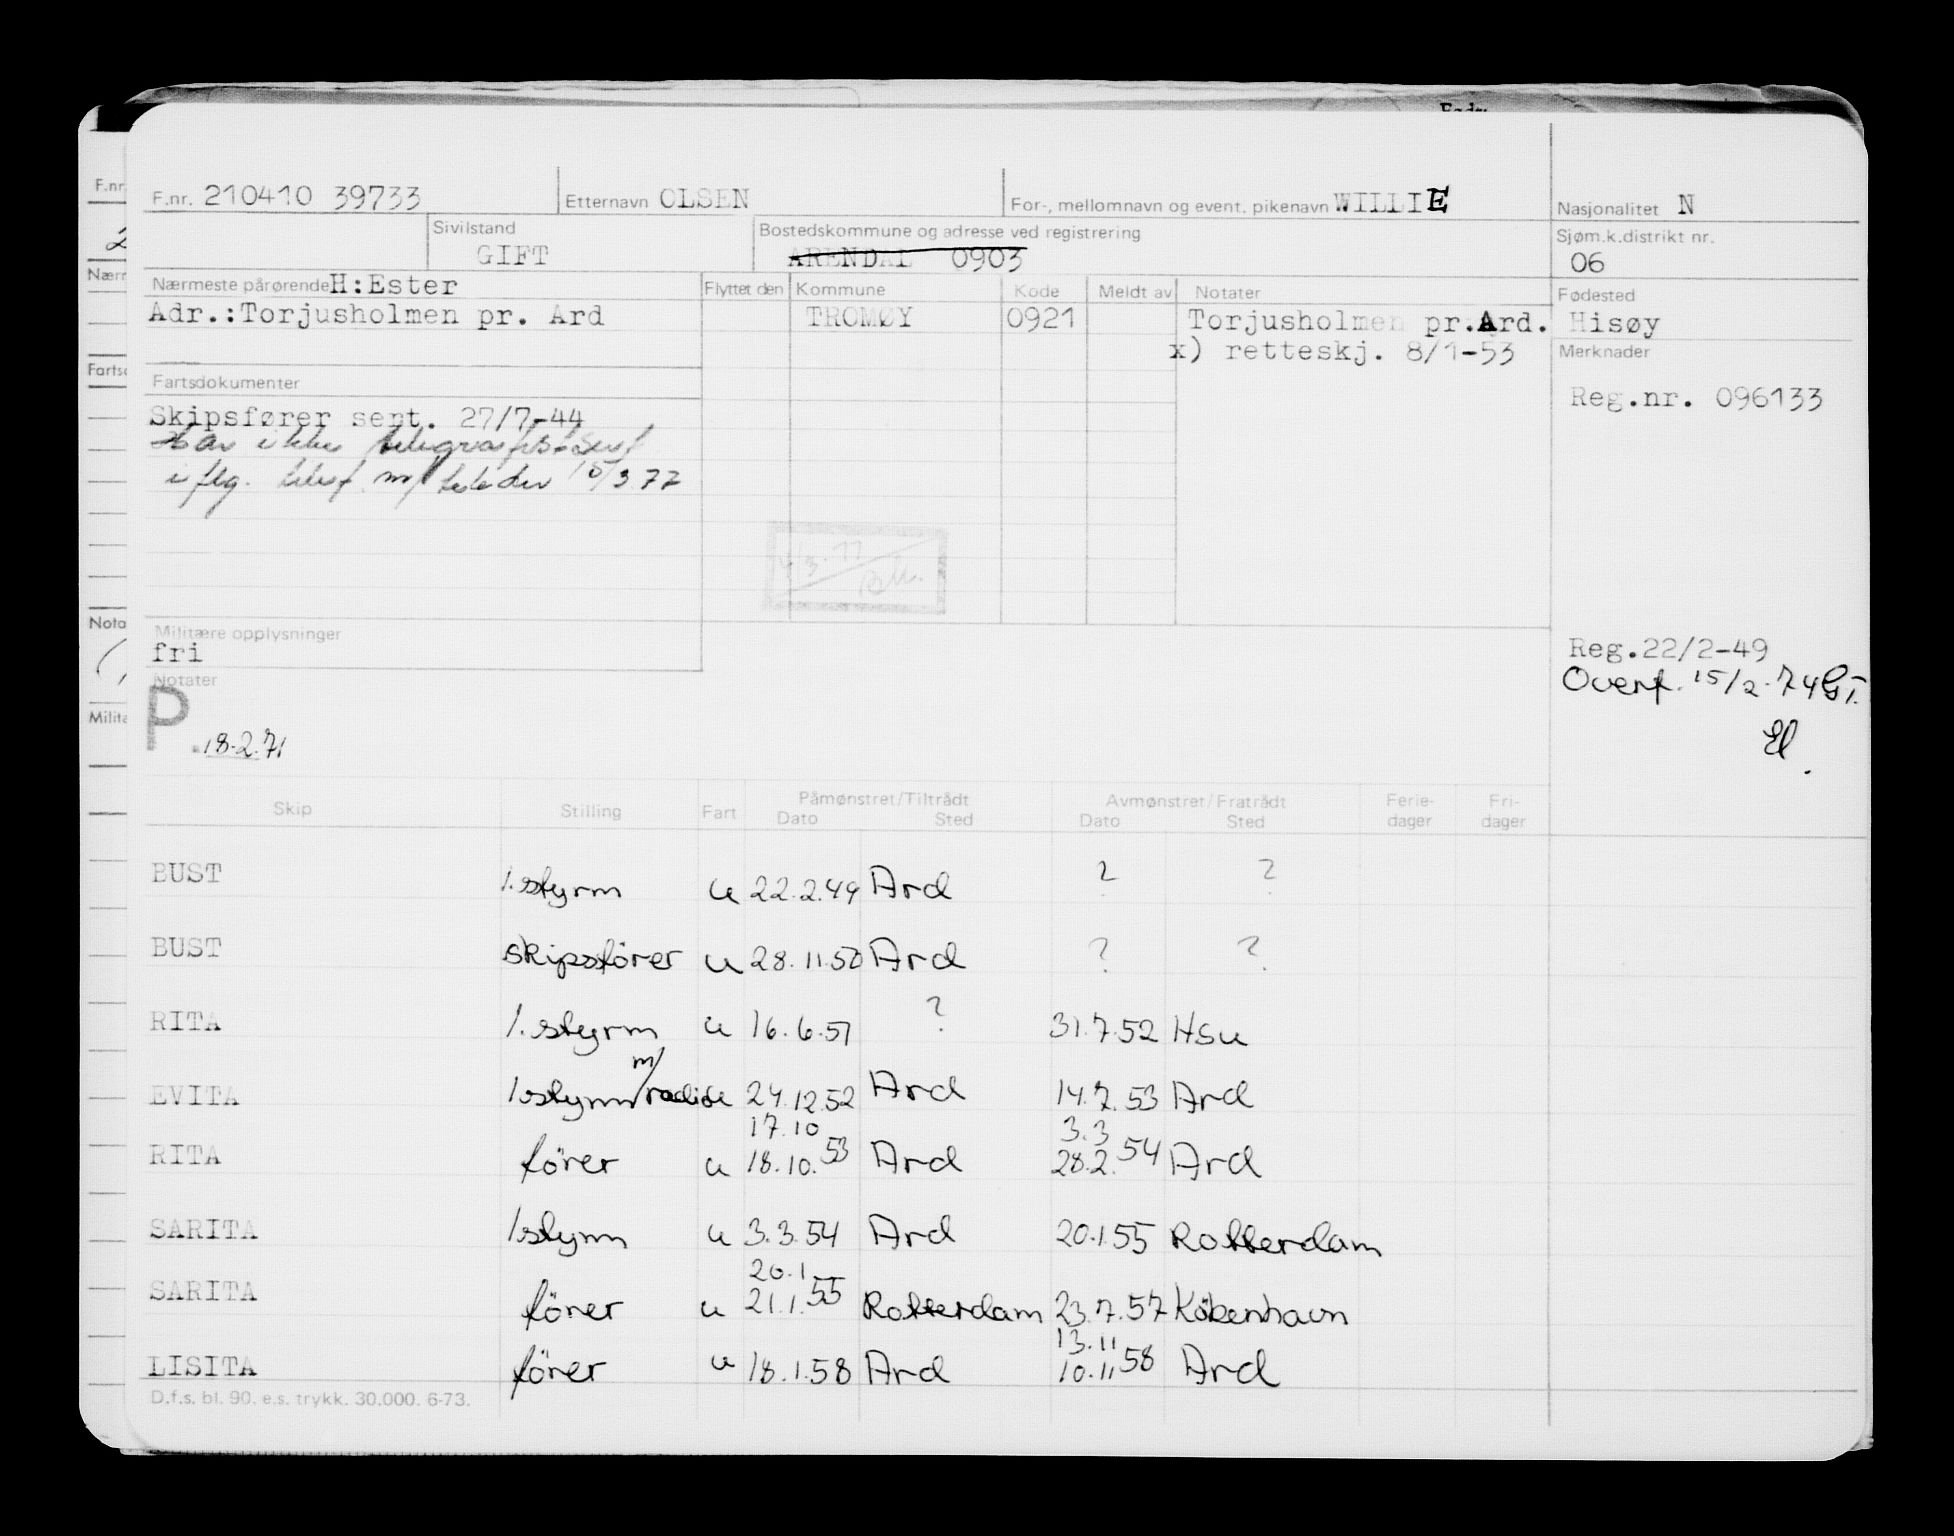 F.nr. 210410 39733 Etternavn OLSEN For-, mellomnavn og event. pikenavn WILLIE Nasjonalitet N
Sivilstand GIFT Bostedskommune og adresse ved registrering ARENDAL 0903 Sjøm.k.distrikt nr. 06
Nærmeste pårørende H:Ester Flyttet den Kommune Kode Meldt av Notater Fødested
Adr.:Torjusholmen pr. Ard TROMØY 0921 Torjusholmen pr.Ard. Hisøy
x) retteskj. 8/1-53 Merknader
Fartsdokumenter Reg.nr. 096133
Skipsfører sert. 27/7-44
Har ikke telegrafistsert
iflg. telef. m/ 15/3 77
4/3.77
Militære opplysninger
fri
Reg.22/2-49
Notater
Overf. 15/2-74 GT.
El.
P. 18.2.71
Skip Stilling Fart Påmønstret/Tiltrådt Dato Sted Avmønstret/Fratrådt Dato Sted Ferie-dager Fri-dager
BUST 1.styrm u 22.2.49 Ard ? ?
BUST skipsfører u 28.11.50 Ard ? ?
RITA 1.styrm u 16.6.51 ? 31.7.52 Hsu
EVITA 1styrm m/radio u 24.12.52 Ard 14.7.53 Ard
17.10 3.3
RITA förer u 18.10.53 Ard 28.2.54 Ard
SARITA 1styrm u 3.3.54 Ard 20.1.55 Rotterdam
20.1
SARITA förer u 21.1.55 Rotterdam 23.7.57 Köbenhavn
13.11
LISITA förer u 18.1.58 Ard 10.11.58 Ard
D.f.s. bl. 90. e.s. trykk. 30.000. 6-73.
F.nr
Nærm
Fartsd
Nota
Milita